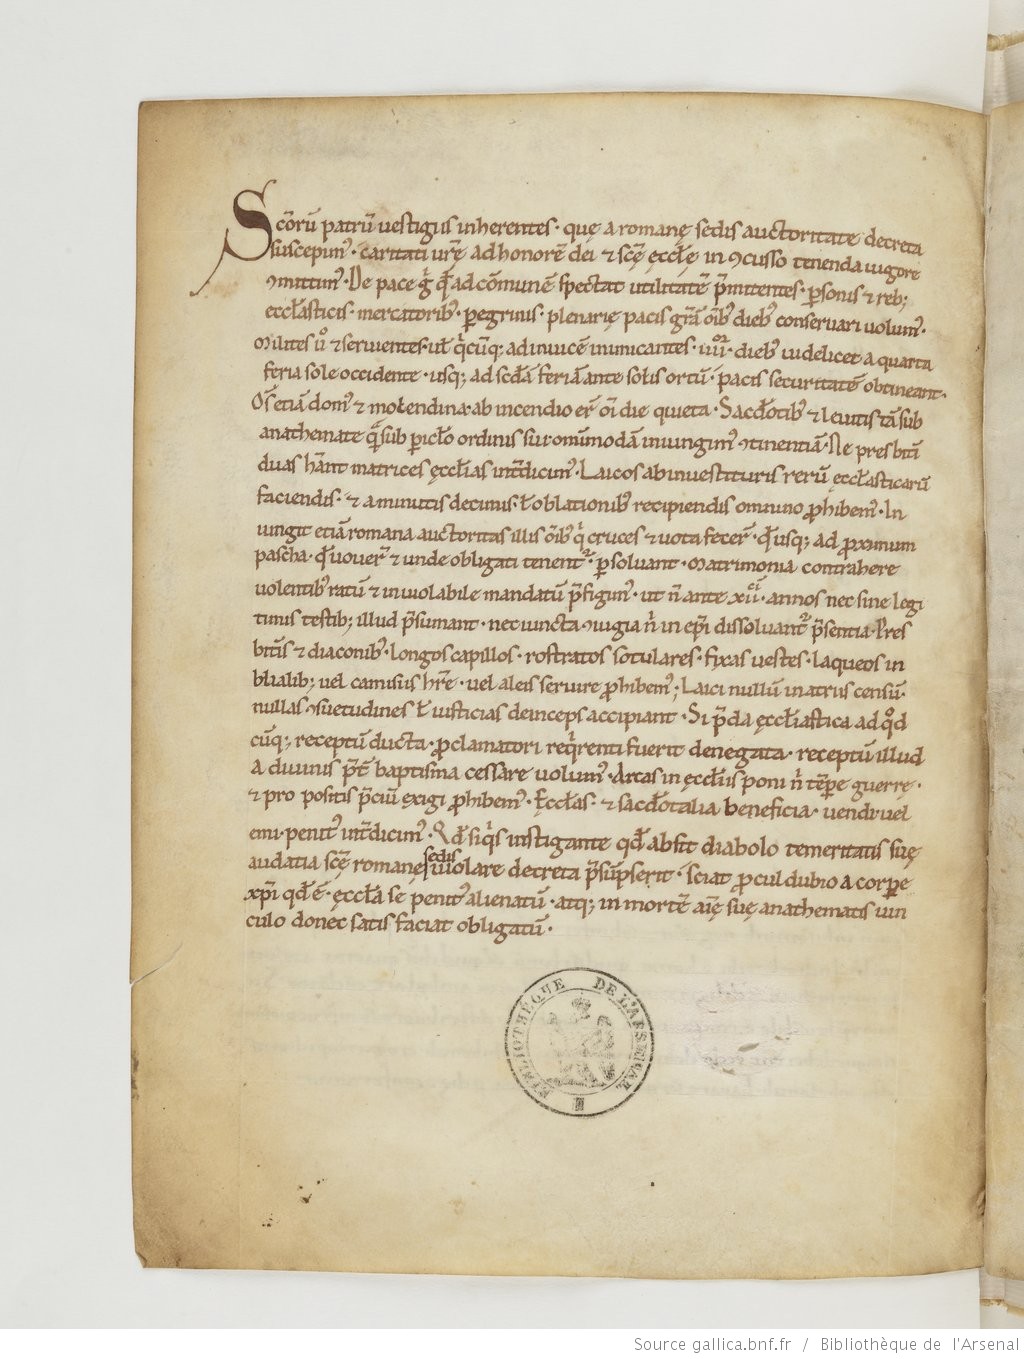 Scōrū patrū uestigiis inherentes· quę a romanę sedis auctoritate decreta
suscepimꝰ· caritati urę̄ ad honorē dei ⁊ scę̄ ęccl̄ę in ꝯcusso tenenda uigore
ꝯmittimꝰ· De pace gͥ qđ ad cōmunē spectat utilitatē p̄mittentes· ꝑsonis ⁊ reb;
ęccl̄asticis· mercatoribꝰ· ꝑegrinis· plenarię pacis gr̄am oīb; diebꝰ conseruari uolumꝰ·
Milites uͦ ⁊ seruientes· ul̄ qͥcūq; ad inuicē inimicantes· iiiiᵒʳ· diebꝰ uidelicet a quarta
feria sole occidente· usq; ad scđā feriā ante solis ortū· pacis securitatē obtineant·
Om̄s etiā domꝰ ⁊ molendina· ab incendio er̄ om̄i die quieta· Sacđotibꝰ ⁊ leuitis tā sub
anathemate qͣ̄ sub ꝑicl̄o ordinis sui omīmodā iniungimꝰ ꝯtinentiā· Ne presbit̄i
duas hānt matrices ęccl̄ias int̄dicimꝰ· Laicos ab inuestituris rerū ęccl̄asticarū
faciendis· ⁊ a minutis decimis· ł oblationibꝰ recipiendis omnino ꝓhibemꝰ· In
iungit etiā romana auctoritas illis oīb; qͥ cruces ⁊ uota fecer̄· qđ usq; ad ꝓximum
pascha· qđ uouer̄ ⁊ unde obligati tenentᷣ· ꝑsoluant· Matrimonia contrahere
uolentibꝰ ratū ⁊ inuiolabile mandatū p̄figimꝰ· ut n̄ ante xii· annos nec sine legi
timis testib; illud p̄sumant· nec iuncta ꝯiugia nͥ in ep̄i dissoluantᷣ p̄sentia· Pres
bit̄is ⁊ diaconibꝰ· longos capillos· rostratos sotulares· fixas uestes· laqueos in
blialib; uel camisiis hr̄e· uel aleis seruire ꝓhibemꝰ; Laici nullū in atriis censū·
nullas ꝯsuetudines ł iusticias deinceps accipiant· Si p̄da ęccl̄iastica ad qͦd
cūq; receptū ducta· ꝓclamatori reqͥrenti fuerit denegata· receptū illud
a diuinis p̄t̄ baptisma cessare uolumꝰ· Arcas in ęccl̄iis poni nͥ tēꝑe guerrę·
⁊ pro positis p̄ciū exigi ꝓhibemꝰ· Ęccl̄as· ⁊ sacđotalia beneficia· uendi uel
emi· penitꝰ int̄dicimꝰ· Qđ siqͥs instigante qđ absit diabolo temeritatis suę
audatia scę̄ romanę sedis uiolare decreta p̄sūpserit· sciat ꝓculdubio a corꝑe
xp̄i qđ ē· ęccl̄a se penitꝰ alienatū· atq; in mortē aīę suę anathematis uin
culo donec satis faciat obligatū·
BIBLIOTHÈQUE DE L'ARSENAL
Source gallica.bnf.fr / Bibliothèque de l'Arsenal